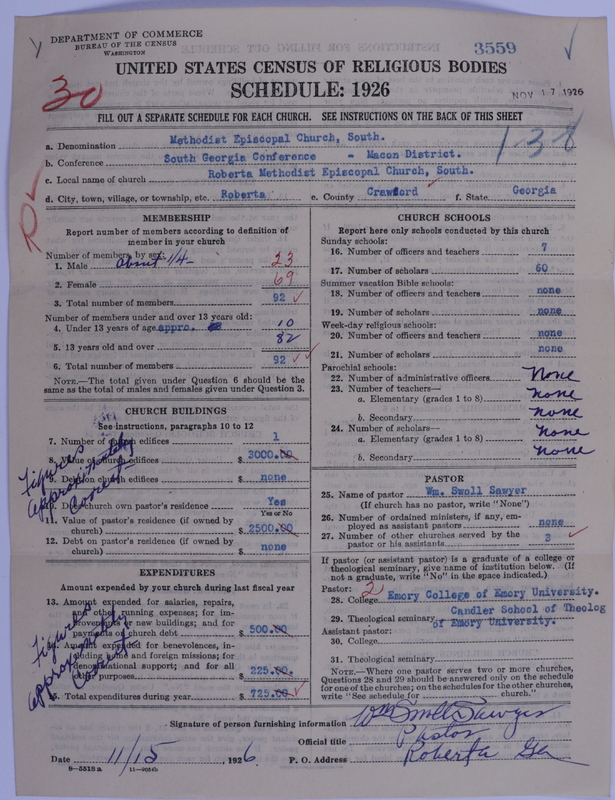 DEPARTMENT OF COMMERCE
BUREAU OF THE CENSUS
WASHINGTON
3559
UNITED STATES CENSUS OF RELIGIOUS BODIES
SCHEDULE: 1926
NOV 17 1926
30
FILL OUT A SEPARATE SCHEDULE FOR EACH CHURCH. SEE INSTRUCTIONS ON THE BACK OF THIS SHEET
138
a. Denomination Methodist Episcopal Church, South.
b. Conference South Georgia Conference - Macon District.
c. Local name of church Roberta Methodist Episcopal Church, South.
d. City, town, village, or township, etc. Roberta e. County Crawford f. State Georgia
MEMBERSHIP
Report number of members according to definition of
member in your church
Number of members by sex:
1. Male about 1/4 23
2. Female 69
3. Total number of members 92
Number of members under and over 13 years old:
4. Under 13 years of age appro. 10
5. 13 years old and over 82
6. Total number of members 92
NOTE.—The total given under Question 6 should be the
same as the total of males and females given under Question 3.
CHURCH BUILDINGS
See instructions, paragraphs 10 to 12
7. Number of church edifices 1
8. Value of church edifices $ 3000.00
9. Debt on church edifices $ none
10. Does church own pastor's residence Yes
Yes or No
11. Value of pastor's residence (if owned by
church) $ 2500.00
12. Debt on pastor's residence (if owned by
church) $ none
Figures
approximately
correct
EXPENDITURES
Amount expended by your church during last fiscal year
13. Amount expended for salaries, repairs,
and other running expenses; for im-
provements; new buildings; and for
payments of church debt $ 500.00
14. Amount expended for benevolences, in-
cluding home and foreign missions; for
denominational support; and for all
other purposes $ 225.00
15. Total expenditures during year $ 725.00
Figures
approximately
correct
CHURCH SCHOOLS
Report here only schools conducted by this church
Sunday schools:
16. Number of officers and teachers 7
17. Number of scholars 60
Summer vacation Bible schools:
18. Number of officers and teachers none
19. Number of scholars none
Week-day religious schools:
20. Number of officers and teachers none
21. Number of scholars none
Parochial schools:
22. Number of administrative officers None
23. Number of teachers—
a. Elementary (grades 1 to 8) none
b. Secondary none
24. Number of scholars—
a. Elementary (grades 1 to 8) none
b. Secondary none
PASTOR
25. Name of pastor Wm. Swoll Sawyer
(If church has no pastor, write "None")
26. Number of ordained ministers, if any, em-
ployed as assistant pastors none
27. Number of other churches served by the
pastor or his assistants 3
If pastor (or assistant pastor) is a graduate of a college or
theological seminary, give name of institution below. (If
not a graduate, write "No" in the space indicated.)
Pastor: 2
28. College Emory College of Emory University.
29. Theological seminary Candler School of Theolog
of Emory University.
Assistant pastor:
30. College
31. Theological seminary
NOTE.—Where one pastor serves two or more churches,
Questions 28 and 29 should be answered only on the schedule
for one of the churches; on the schedules for the other churches,
write "See schedule for church."
Signature of person furnishing information Wm Swoll Sawyer
Official title Pastor
Date 11/15, 1926 P. O. Address Roberta Ga
9-5518 a 11-9054b